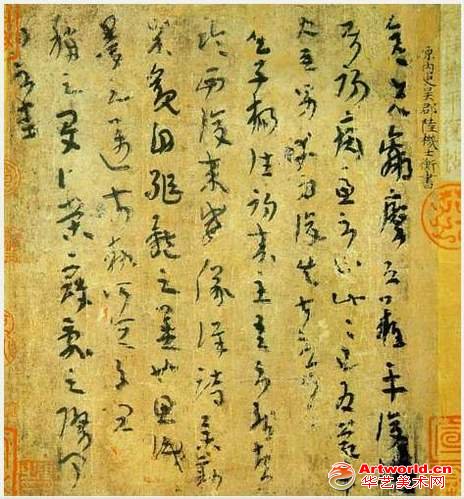 原內史吳郡陸機士衡書
彥先羸瘵恐難平復
初病慮不止此此已為慶
使唯男幸為復失前憂耳
子楊往初來主吾不能盡
臨西復來威儀詳跱舉動
成觀自軀體之美也思識
量之邁前勢所恒有宜
稱之夏伯榮寇亂之際聞
問不悉
Artworld.cn
华艺美术网